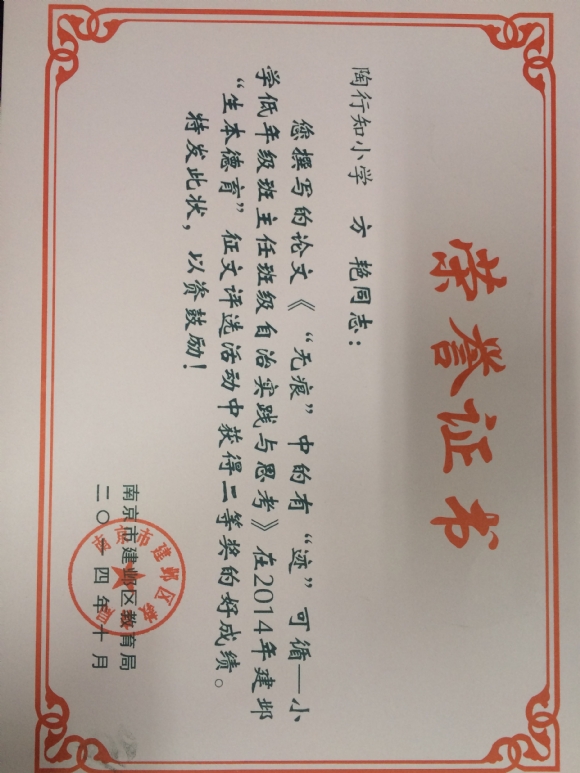 荣誉证书
陶行知小学 方 艳同志：
您撰写的论文《“无痕”中的有“迹”可循—小
学低年级班主任班级自治实践与思考》在2014年建邺
“生本德育”征文评选活动中获得二等奖的好成绩。
特发此状，以资鼓励！
南京市建邺区教育局
二〇一四年十月